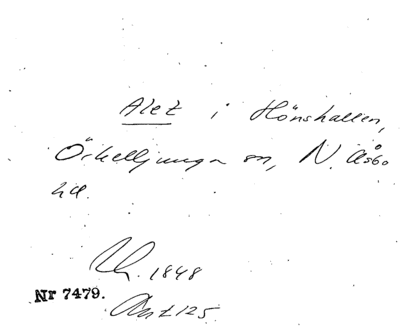 Alet i Hönshallen,
Örkelljunga sn, N. Åsbo
hd.
Uh. 1848
Nr 7479.
Ant 125